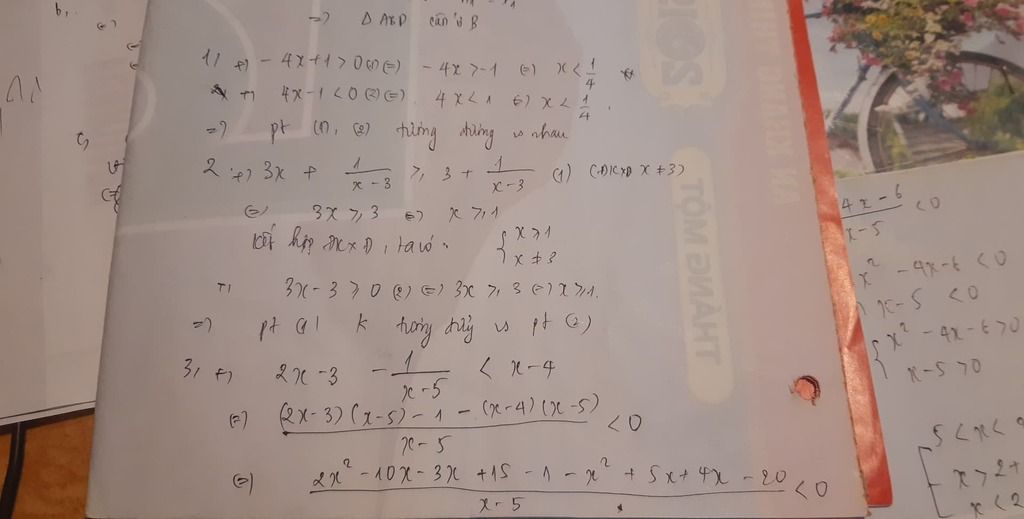 => Δ ABD cân ở B
1, +) - 4x+1 > 0 (1) (=) - 4x > -1 (=) x < 1/4
+) 4x-1 < 0 (2) (=) 4x < 1 (=) x < 1/4.
=> pt (1), (2) tương đương vs nhau
2. +) 3x + 1/(x-3) ≥ 3 + 1/(x-3) (1) (ĐKXĐ x ≠ 3)
(=) 3x ≥ 3 (=) x ≥ 1
Kết hợp ĐKXĐ, ta có: { x ≥ 1
x ≠ 3
+) 3x-3 ≥ 0 (2) (=) 3x ≥ 3 (=) x ≥ 1.
=> pt (1) k tương đương vs pt (2)
3, +) 2x-3 - 1/(x-5) < x-4
(=) ((2x-3)(x-5) - 1 - (x-4)(x-5))/(x-5) < 0
(=) (2x² - 10x - 3x + 15 - 1 - x² + 5x + 4x - 20)/(x-5) < 0
b,
c,
THÁNG MỘT
4x-6
x-5 < 0
x² - 4x-6 < 0
x-5 < 0
{ x² - 4x-6 > 0
x-5 > 0
5 < x <
[ x > 2+
x < 2